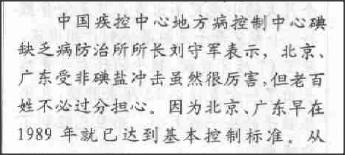 中国疾控中心地方病控制中心碘
缺乏病防治所所长刘守军表示，北京、
广东受非碘盐冲击虽然很厉害，但老百
姓不必过分担心。因为北京、广东早在
1989 年就已达到基本控制标准。从